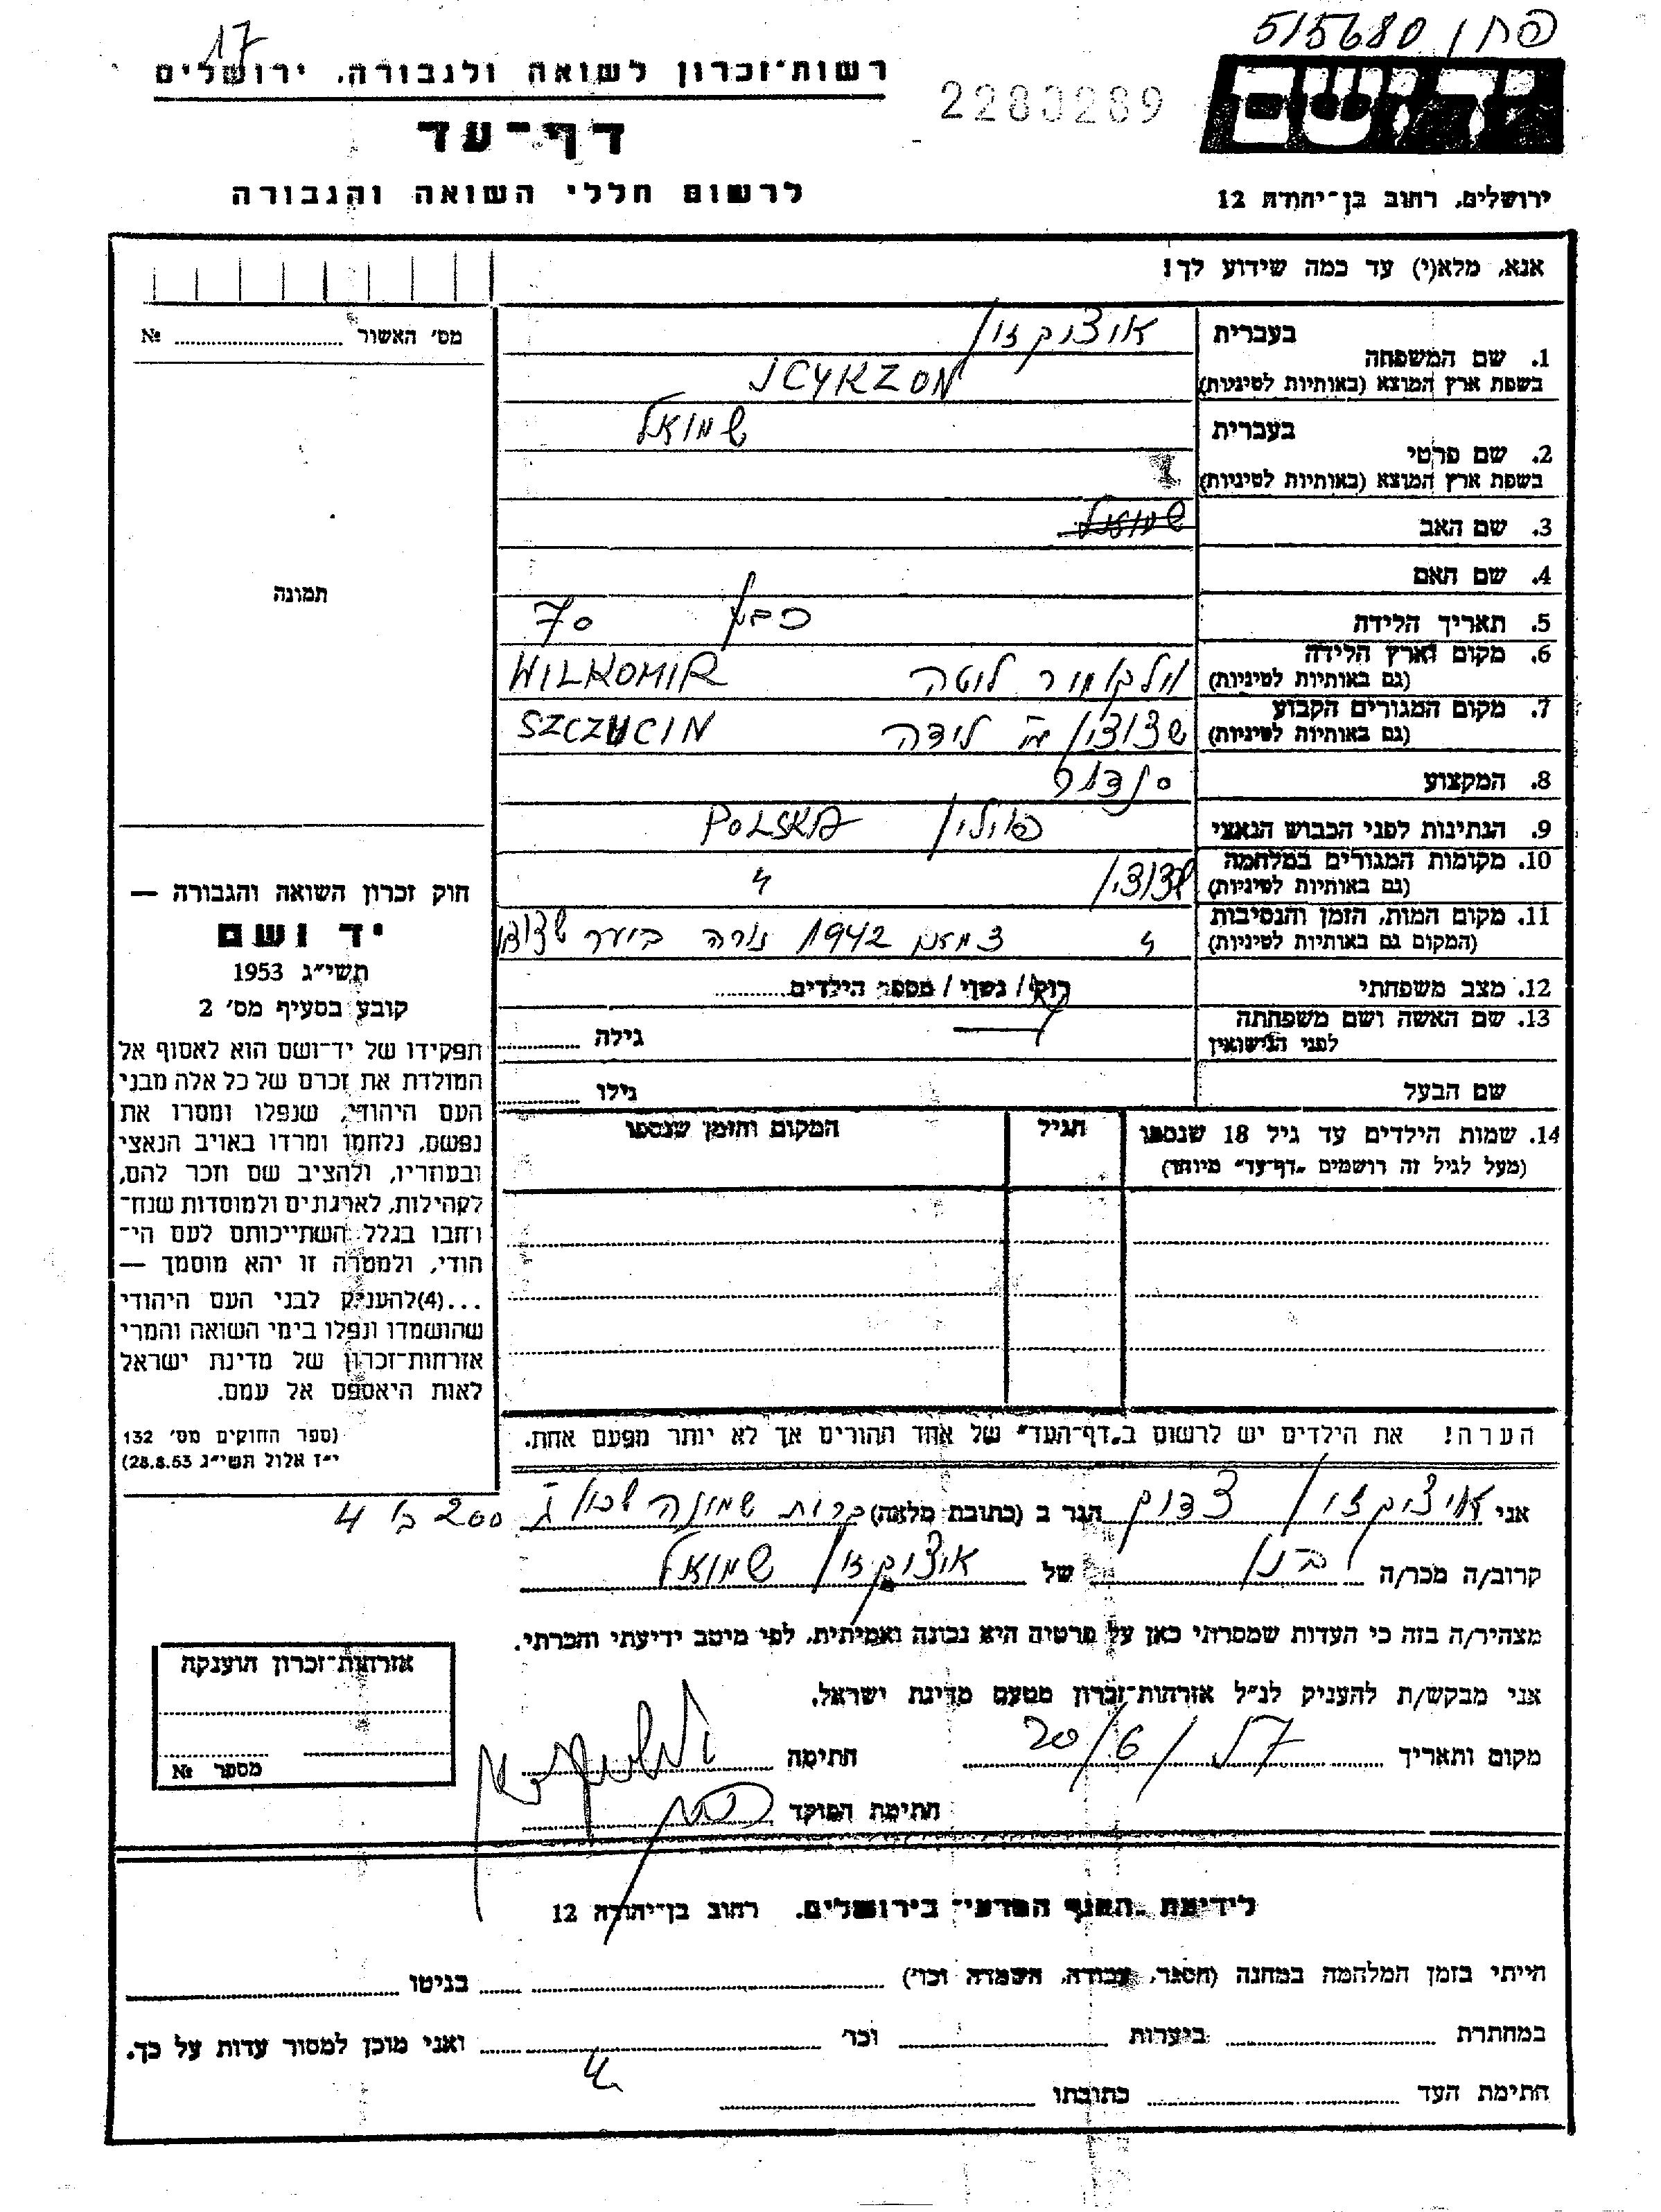 17
515680
רשות־זכרון לשואה ולגבורה, ירושלים
2280289
יד ושם
דף־עד
לרשום חללי השואה והגבורה
ירושלים, רחוב בן־יהודה 12
אנא, מלא(י) עד כמה שידוע לך!
מס׳ האשור № 
1. שם המשפחה
בעברית
בשפת ארץ המוצא (באותיות לטיניות)
ICYKZON
2. שם פרטי
בעברית שמואל
בשפת ארץ המוצא (באותיות לטיניות)
3. שם האב שמואל
4. שם האם
תמונה
5. תאריך הלידה 70
6. מקום וארץ הלידה
(גם באותיות לטיניות)
WILKOMIR
7. מקום המגורים הקבוע
(גם באותיות לטיניות)
לידה SZCZUCIN
8. המקצוע סנדלר
9. הנתינות לפני הכבוש הנאצי פולין POLSKA
10. מקומות המגורים במלחמה
(גם באותיות לטיניות)
11. מקום המות, הזמן והנסיבות
(המקום גם באותיות לטיניות)
1942 נורה ביער
12. מצב משפחתי רוק / נשוי / מספר הילדים
13. שם האשה ושם משפחתה
לפני הנישואין
גילה
שם הבעל גילו
14. שמות הילדים עד גיל 18 שנספו הגיל המקום והזמן שנספו
(מעל לגיל זה רושמים „דף־עד״ מיוחד)
חוק זכרון השואה והגבורה —
יד ושם
תשי״ג 1953
קובע בסעיף מס׳ 2
תפקידו של יד־ושם הוא לאסוף אל
המולדת את זכרם של כל אלה מבני
העם היהודי, שנפלו ומסרו את
נפשם, נלחמו ומרדו באויב הנאצי
ובעוזריו, ולהציב שם וזכר להם,
לקהילות, לארגונים ולמוסדות שנח־
רבו בגלל השתייכותם לעם הי־
הודי, ולמטרה זו יהא מוסמך —
...(4)להעניק לבני העם היהודי
שהושמדו ונפלו בימי השואה והמרי
אזרחות־זכרון של מדינת ישראל
לאות היאספם אל עמם.
(ספר החוקים מס׳ 132
י״ז אלול תשי״ג 28.8.53)
הערה! את הילדים יש לרשום ב„דף־העד״ של אחד ההורים אך לא יותר מפעם אחת.
אני איציקזון הגר ב (כתובת מלאה) קרית שמונה 200 4
קרוב/ה מכר/ה בנו של איציקזון שמואל
מצהיר/ה בזה כי העדות שמסרתי כאן על פרטיה היא נכונה ואמיתית, לפי מיטב ידיעתי והכרתי.
אני מבקש/ת להעניק לנ״ל אזרחות־זכרון מטעם מדינת ישראל.
מקום ותאריך 20/6/57 חתימה
חתימת הפוקד
אזרחות־זכרון הוענקה
מספר №
לידיעת „הענף המדעי״ בירושלים. רחוב בן־יהודה 12
הייתי בזמן המלחמה במחנה (הסגר, עבודה, השמדה וכו׳) בגיטו
במחתרת ביערות וכו׳ ואני מוכן למסור עדות על כך.
חתימת העד כתובתו